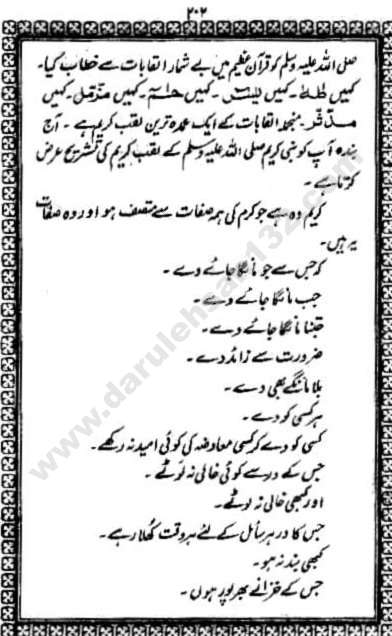 ۲۰۲
صلی اللہ علیہ وسلم کو قرآن عظیم میں بے شمار القابات سے خطاب کیا۔
کہیں طٰہٰ۔ کہیں یٰسٓ۔ کہیں حٰمٓ۔ کہیں مزّمّل۔ کہیں
مدّثّر۔ منجملہ القابات کے ایک عمدہ ترین لقب کریم ہے۔ آج
بندہ آپ کو نبی کریم صلی اللہ علیہ وسلم کے لقب کریم کی تشریح عرض
کرتا ہے۔
کریم وہ ہے جو کرم کی ہر صفات سے متصف ہو اور وہ صفات
یہ ہیں۔
کہ جس سے جو مانگا جائے دے۔
جب مانگا جائے دے۔
جتنا مانگا جائے دے۔
ضرورت سے زائد دے۔
بلا مانگے بھی دے۔
ہر کسی کو دے۔
کسی کو دے کر کسی معاوضہ کی کوئی امید نہ رکھے۔
جس کے در سے کوئی خالی نہ لوٹے۔
اور کبھی خالی نہ لوٹے۔
جس کا در ہر سائل کے لئے ہر وقت کھلا رہے۔
کبھی بند نہ ہو۔
جس کے خزانے بھرپور ہوں۔
www.darulehsan132.com